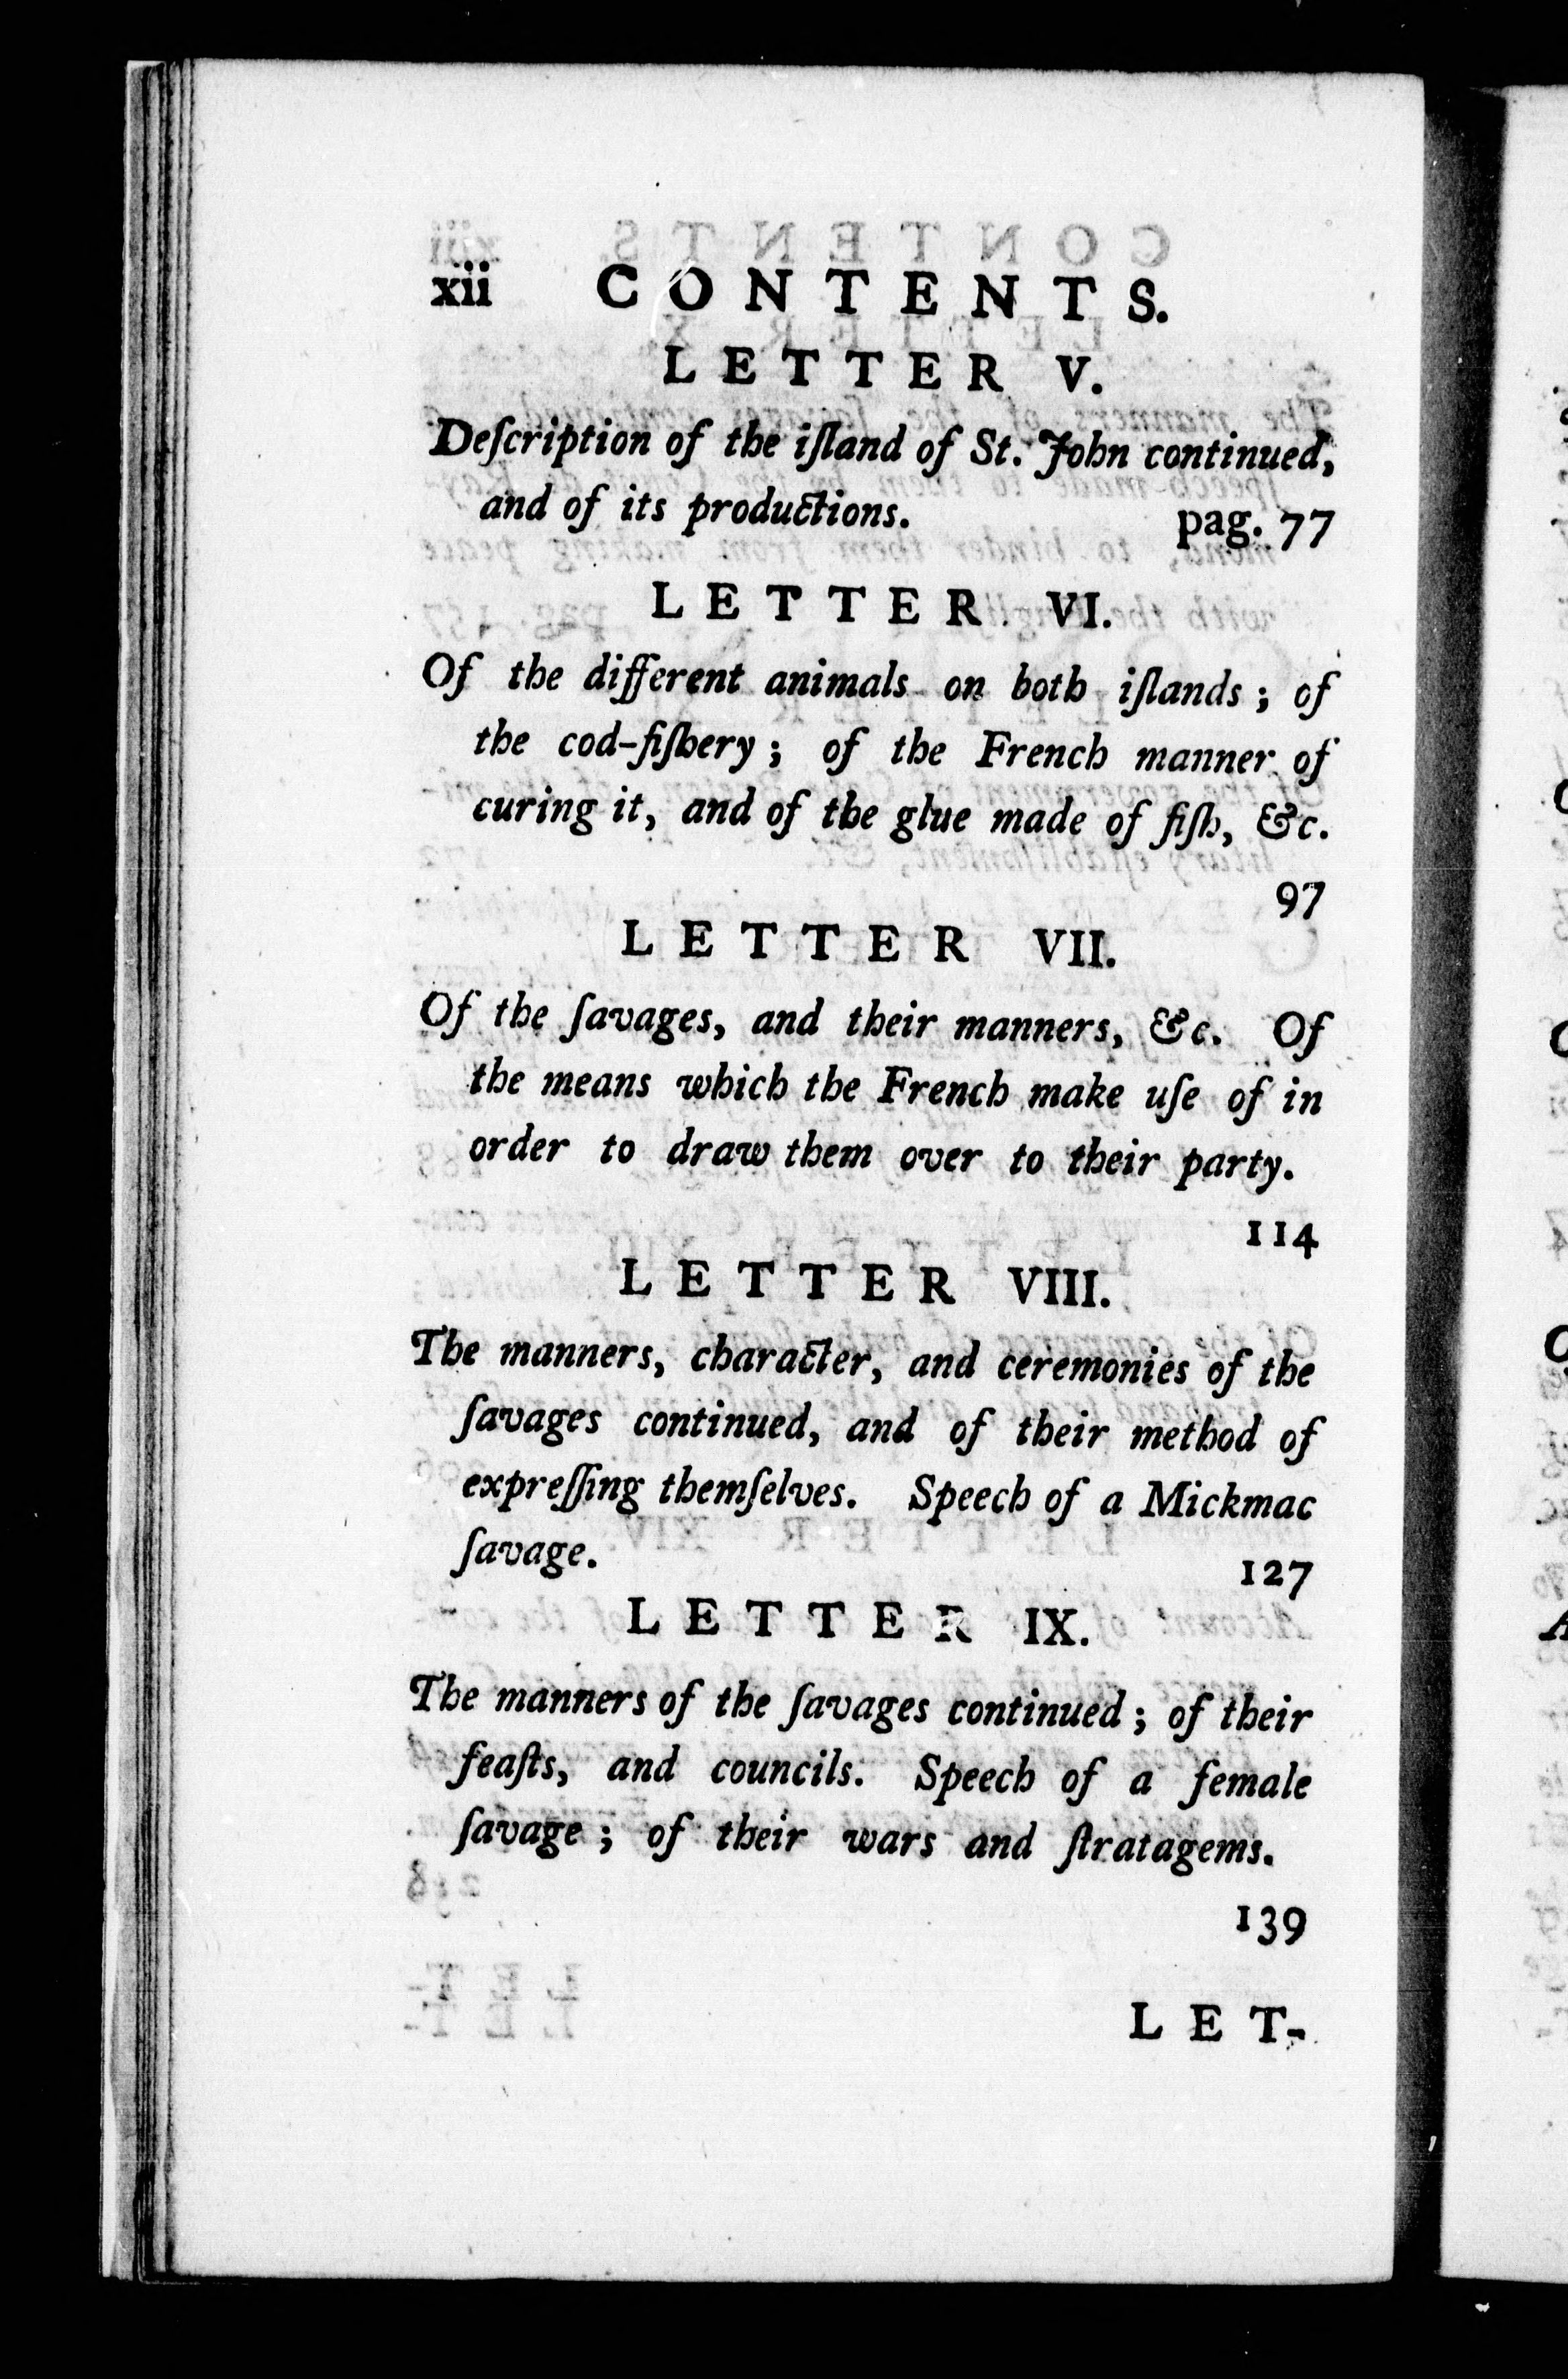 xii CONTENTS.
LETTER V.
Deſcription of the iſland of St. John continued,
and of its productions. pag. 77
LETTER VI.
Of the different animals on both iſlands; of
the cod-fiſhery; of the French manner of
curing it, and of the glue made of fiſh, &c.
97
LETTER VII.
Of the ſavages, and their manners, &c. Of
the means which the French make uſe of in
order to draw them over to their party.
114
LETTER VIII.
The manners, character, and ceremonies of the
ſavages continued, and of their method of
expreſſing themſelves. Speech of a Mickmac
ſavage. 127
LETTER IX.
The manners of the ſavages continued; of their
feaſts, and councils. Speech of a female
ſavage; of their wars and ſtratagems.
139
LET-